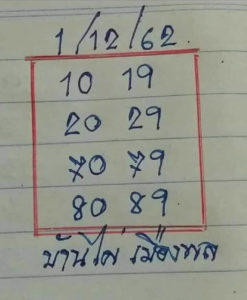 1/12/62
10 19
20 29
70 79
80 89
บ้านไผ่ เมืองพล